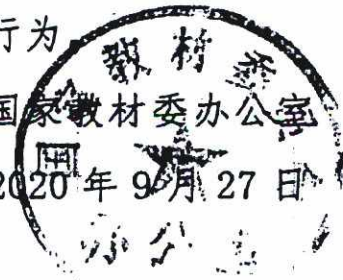 行为
国家教材委办公室
2020年9月27日
教材委
办公